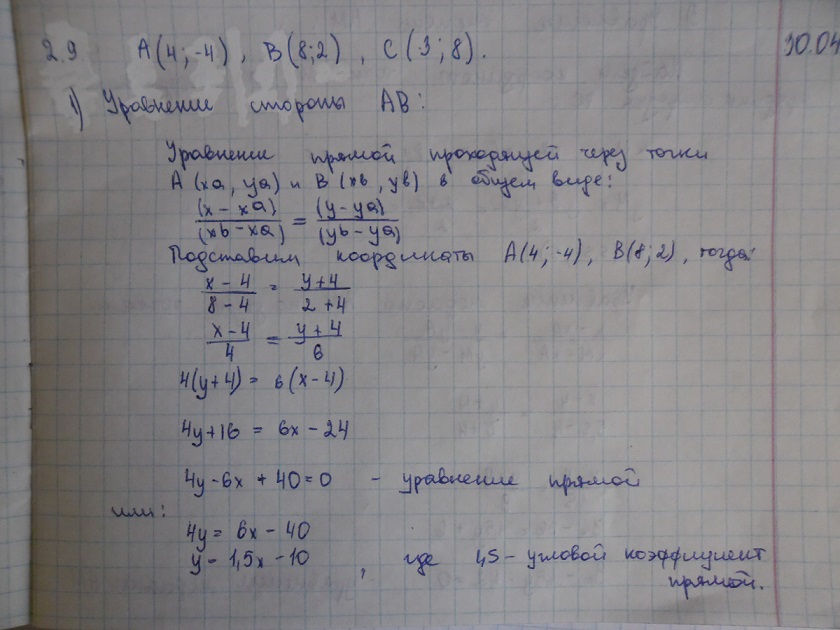 2.9 A(4;-4), B(8;2), C(3;8). 30.04
1) Уравнение стороны AB:
Уравнение прямой проходящей через точки
A (xa, ya) и B (xb, yb) в общем виде:
(x - xa)/(xb - xa) = (y - ya)/(yb - ya)
Подставим координаты A(4;-4), B(8;2), тогда:
x - 4/8 - 4 = y+4/2+4
x - 4/4 = y+4/6
4(y+4) = 6(x-4)
4y+16 = 6x - 24
4y - 6x + 40 = 0 - уравнение прямой
или:
4y = 6x - 40
y = 1,5x - 10, где 1,5 - угловой коэффициент
прямой.